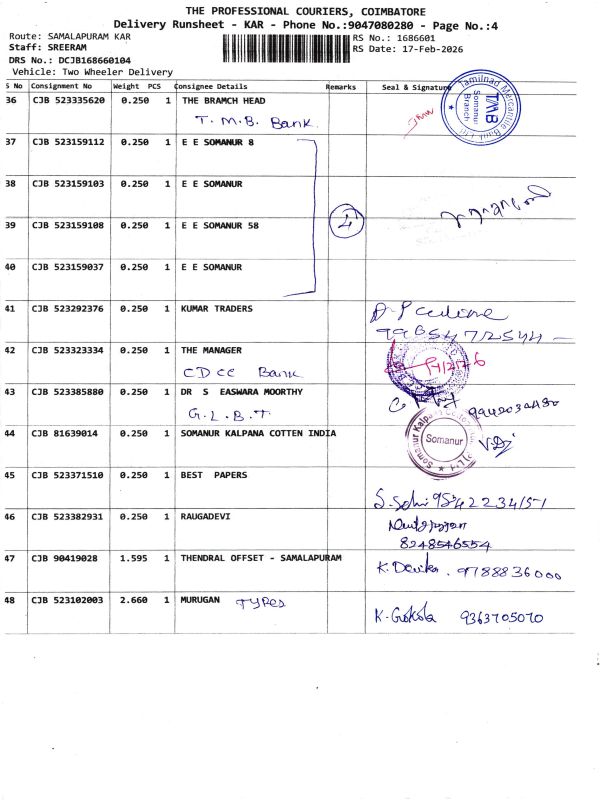 THE PROFESSIONAL COURIERS, COIMBATORE
Delivery Runsheet - KAR - Phone No.:9047080280 - Page No.:4
Route: SAMALAPURAM KAR
RS No.: 1686601
Staff: SREERAM
RS Date: 17-Feb-2026
DRS No.: DCJB168660104
Vehicle: Two Wheeler Delivery
S No Consignment No Weight PCS Consignee Details Remarks Seal & Signature
36 CJB 523335620 0.250 1 THE BRAMCH HEAD
T. M. B. Bank
Tamilnad Mercantile Bank Ltd
TMB
Somanur
Branch
37 CJB 523159112 0.250 1 E E SOMANUR 8
38 CJB 523159103 0.250 1 E E SOMANUR
39 CJB 523159108 0.250 1 E E SOMANUR 58
4
40 CJB 523159037 0.250 1 E E SOMANUR
41 CJB 523292376 0.250 1 KUMAR TRADERS
42 CJB 523323334 0.250 1 THE MANAGER
CDCC Bank
43 CJB 523385880 0.250 1 DR S EASWARA MOORTHY
G.L.B.T
44 CJB 81639014 0.250 1 SOMANUR KALPANA COTTEN INDIA
Somanur
45 CJB 523371510 0.250 1 BEST PAPERS
46 CJB 523382931 0.250 1 RAUGADEVI
8248546554
47 CJB 90419028 1.595 1 THENDRAL OFFSET - SAMALAPURAM
K. Devika. 9788836000
48 CJB 523102003 2.660 1 MURUGAN TYRES
K. Gokila 9363705070